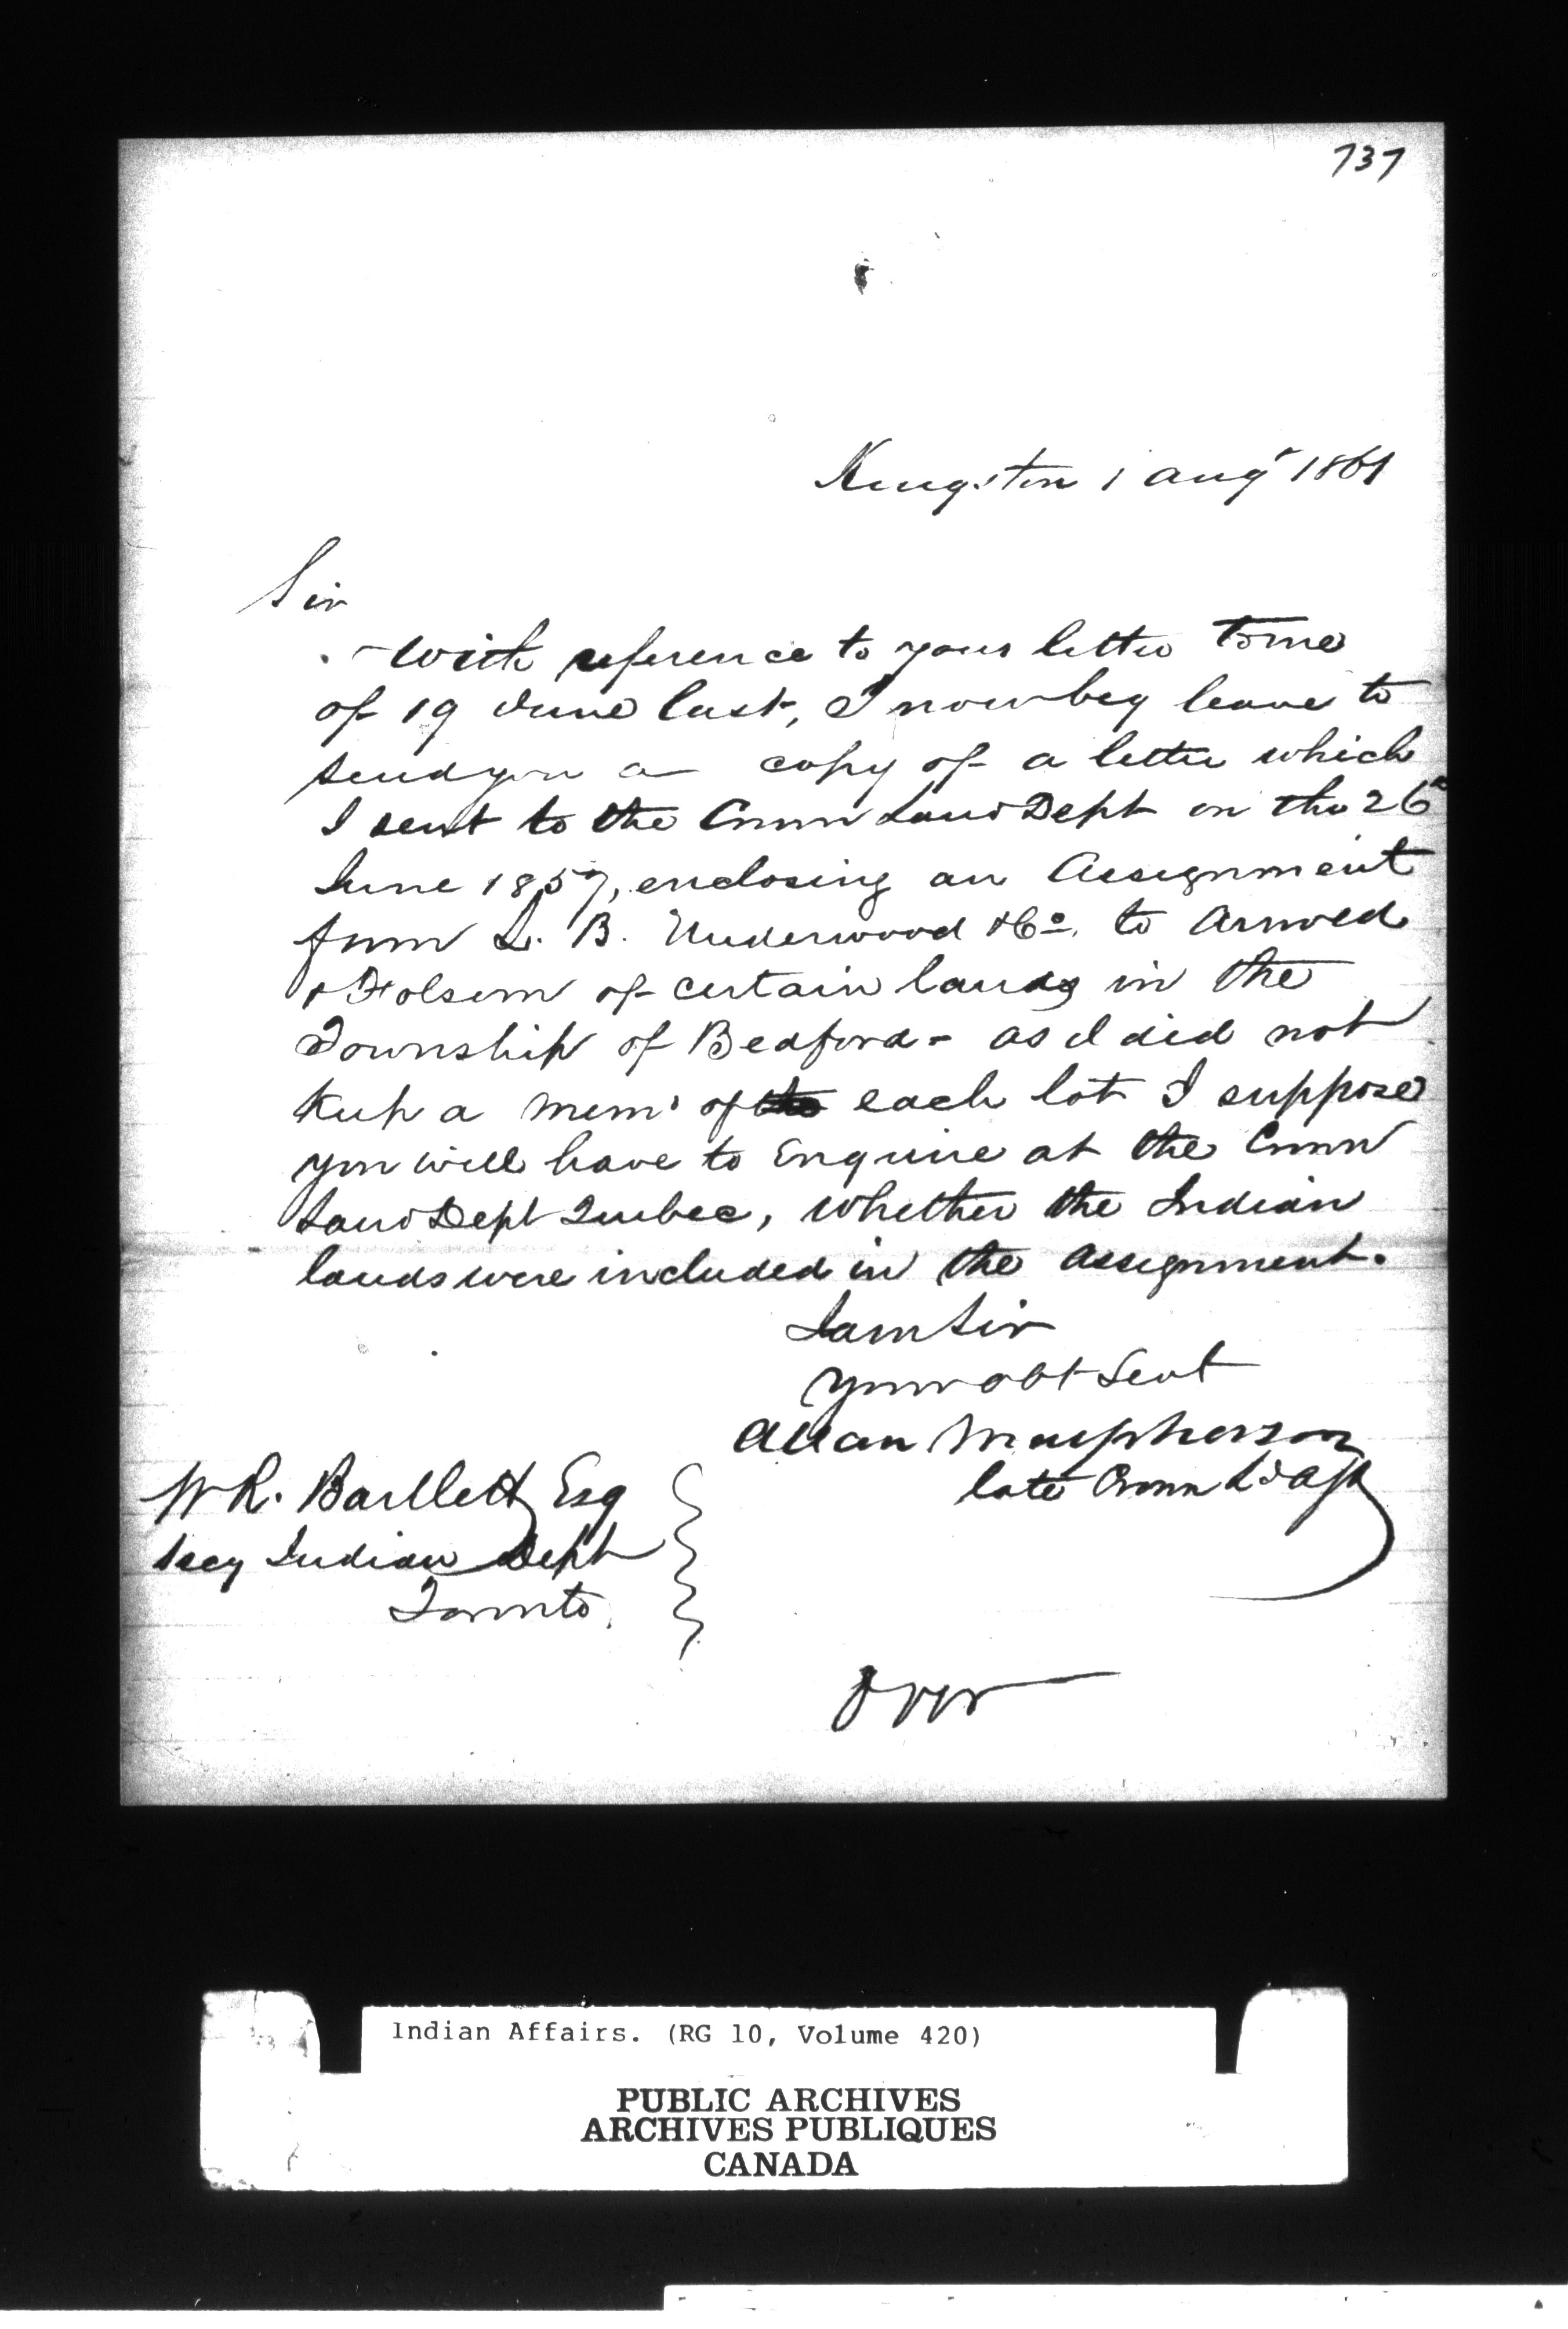 737
Kingston 1 Augt 1861
Sir
With reference to your letter to me
of 19 June last, I now beg leave to
send you a copy of a letter which
I sent to the Crown Land Dept on the 26th
June 1857, enclosing an Assignment
from L. B. Underwood & Co. to Arnold
& Folsom of certain lands in the
Township of Bedford - as I did not
Keep a mem. of the each lot I suppose
you will have to Enquire at the Crown
Land Dept Quebec, whether the Indian
lands were included in the assignment.
I am Sir
Your obt Sevt
Allan Macpherson
late Crown Ld Agt
W R. Bartlett Esq
Secy Indian Dept
Toronto.
Over
Indian Affairs. (RG 10, Volume 420)
PUBLIC ARCHIVES
ARCHIVES PUBLIQUES
CANADA